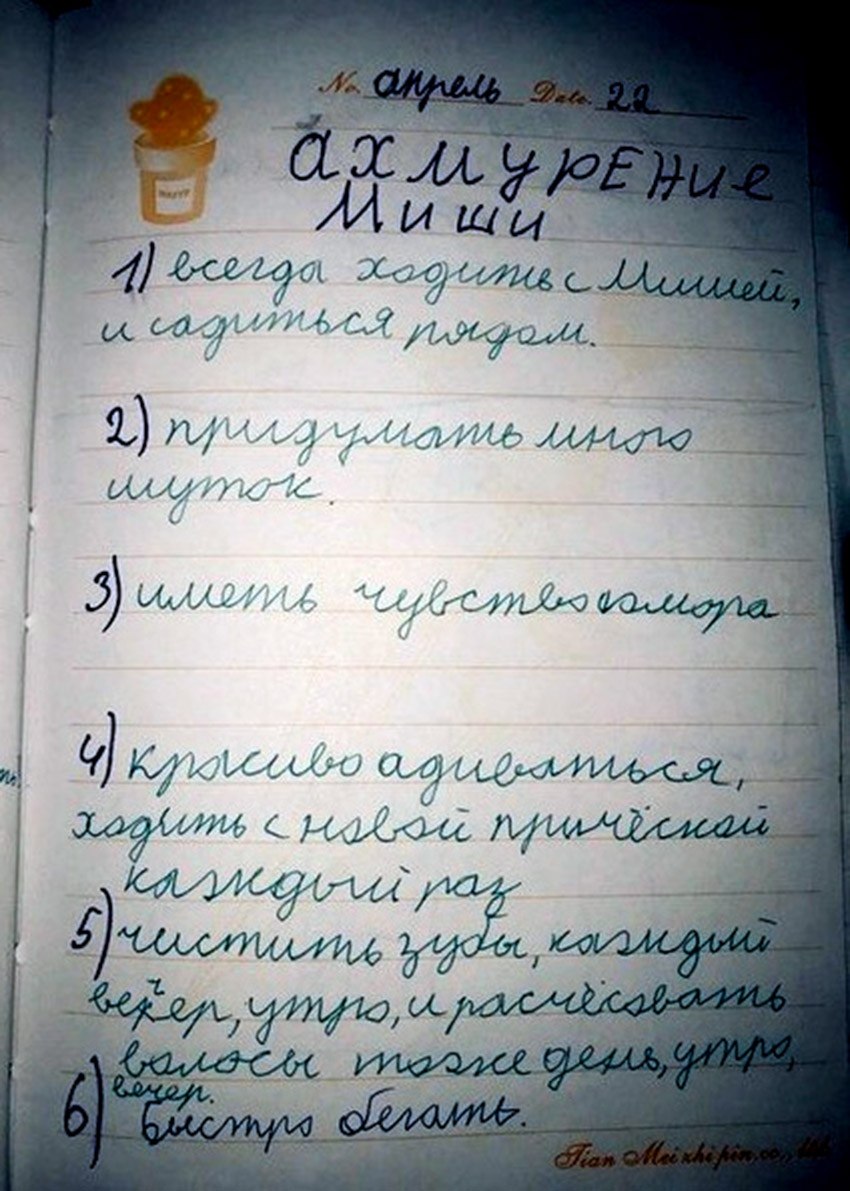 No. апрель Date 22
ахмурЕние
Миши
1) всегда ходить с Мишей,
и садиться рядом.
2) придумать много
шуток.
3) иметь чувство юмора
4) красиво адиваться,
ходить с новой причёской
каждый раз
5) чистить зубы, каждый
вечер, утро, и расчёсовать
волосы тоже день, утро,
вечер.
6) Быстро бегать.
Tian Mei zhi pin co.,